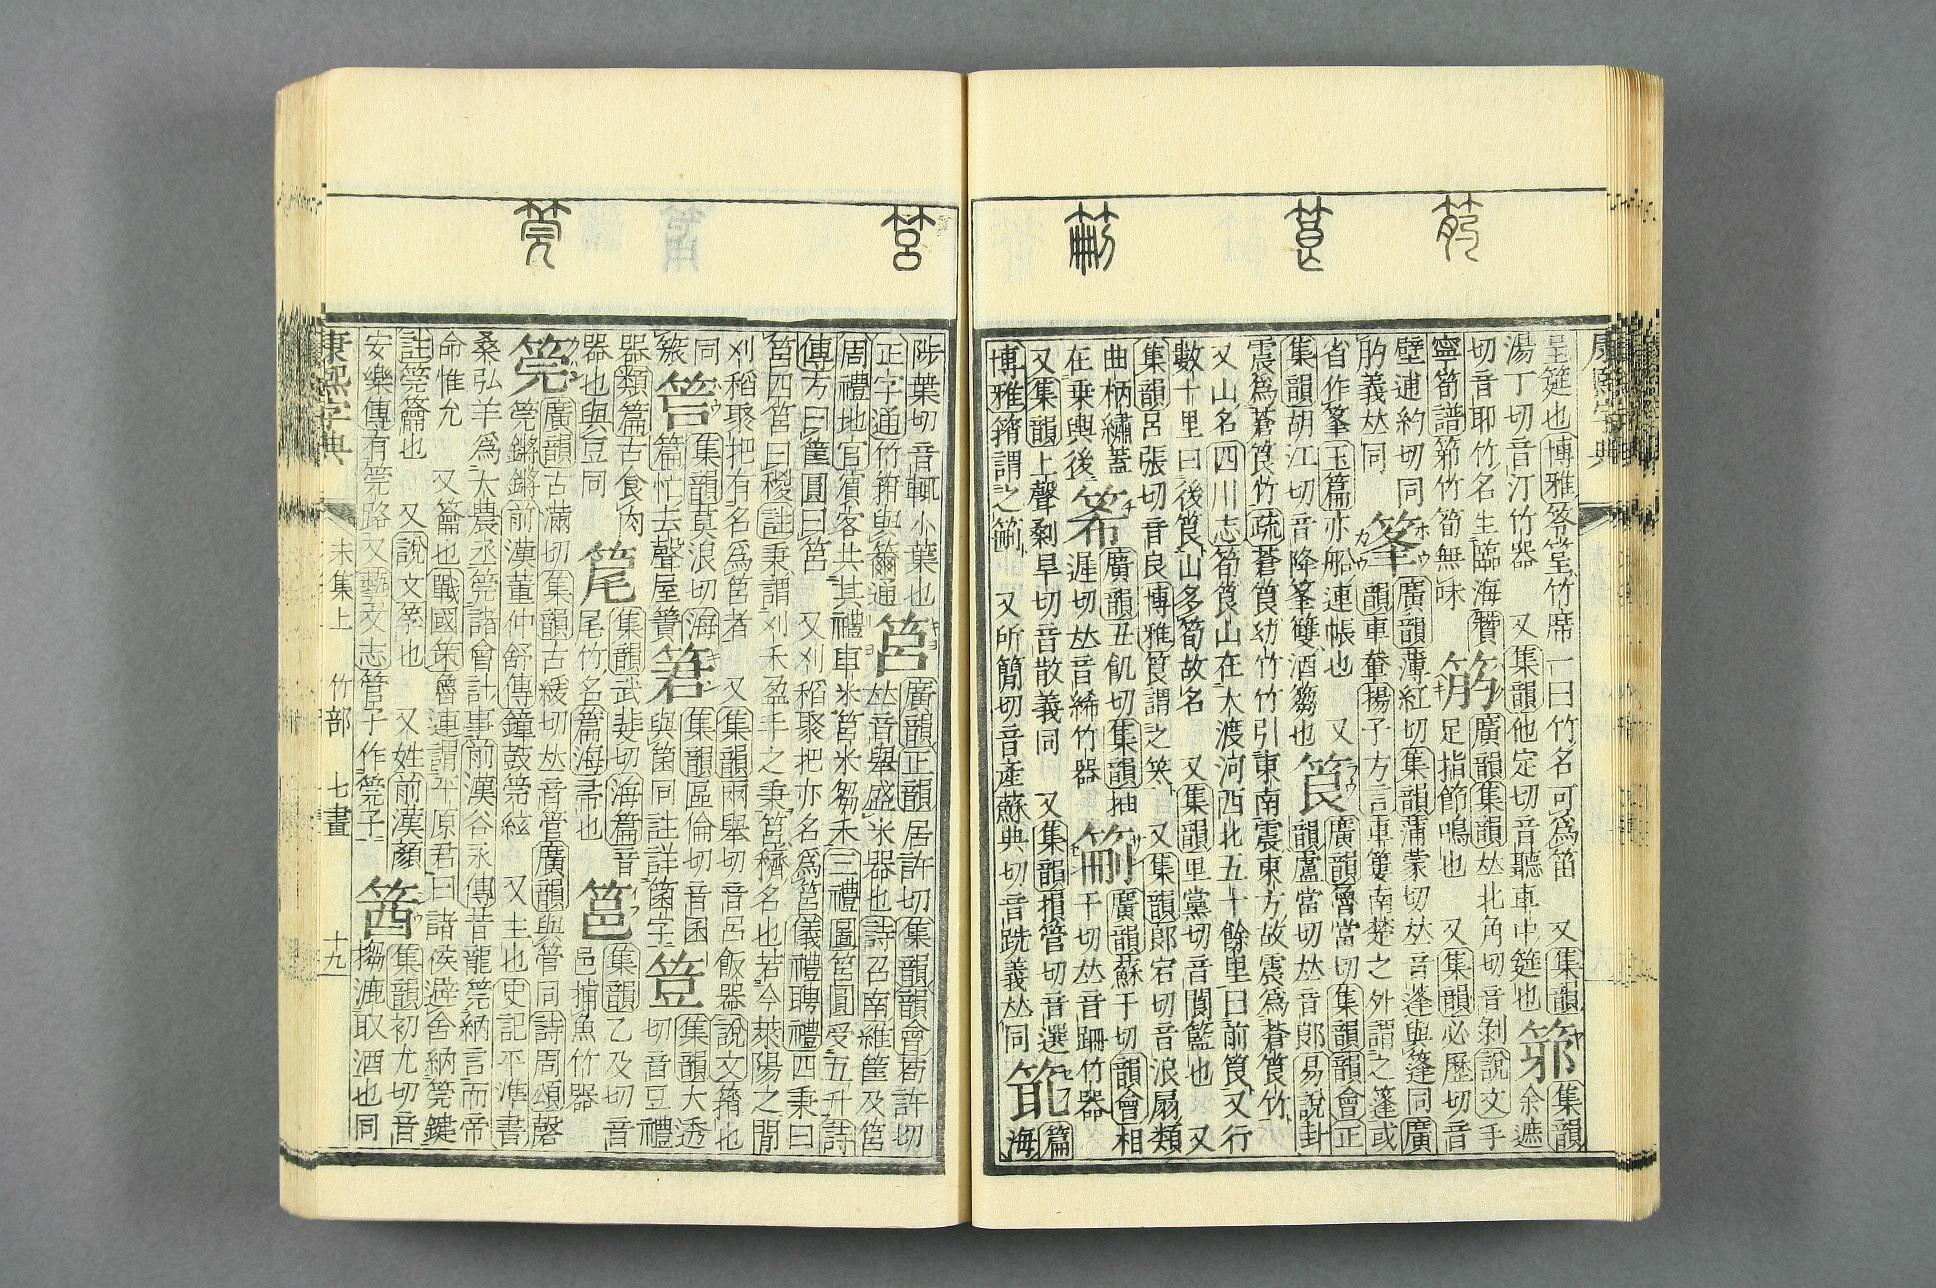 康熙字典
呈筵也博雅筕
竹席一曰竹名可爲笛 又集韻
湯丁切音汀竹器 又集韻他定切音聽車中筵也
集韻
余遮
切音耶竹名生臨海贊
寧筍譜
竹筍無味
廣韻集韻𠀤北角切音剝說文手
足指節鳴也 又集韻必歷切音
壁逋約切同
肑義𠀤同
廣韻薄紅切集韻蒲蒙切𠀤音蓬與篷同廣
韻車軬揚子方言車簍南楚之外謂之篷或
省作
玉篇亦船連帳也 又
集韻胡江切音降
雙酒篘也
筤
廣韻魯當切集韻韻會正
韻盧當切𠀤音郎易說卦
震爲蒼筤竹疏蒼筤幼竹竹引東南震東方故震爲蒼筤竹
又山名四川志筍筤山在大渡河西北五十餘里曰前筤又行
數十里曰後筤山多筍故名 又集韻里黨切音閬籃也 又
集韻呂張切音良博雅筤謂之筊 又集韻郎宕切音浪扇類
曲柄繡蓋
在乗輿後
廣韻丑飢切集韻抽
遲切𠀤音絺竹器
廣韻蘇干切韻會相
干切𠀤音跚竹器
又集韻上聲剗旱切音散義同 又集韻損管切音選
博雅簎謂之
又所簡切音產蘇典切音跣義𠀤同
篇
海
陟葉切音輒小葉也
正字通竹箣與籋通
筥
廣韻正韻居許切集韻韻會苟許切
𠀤音舉盛米器也詩召南維筐及筥
周禮地官賔客共其禮車米筥米芻禾三禮圖筥圓受五升詩
傳方曰筐圓曰筥 又刈稻聚把亦名爲筥儀禮聘禮四秉曰
筥四筥曰稯註秉謂刈禾盈手之秉筥穧名也若今萊陽之閒
刈稻聚把有名爲筥者 又集韻兩舉切音呂飯器說文簎也
同
簇
集韻莫浪切海
篇忙去聲屋簣
集韻區倫切音囷
與箘同註詳箘字
集韻大透
切音豆禮
器類篇古食肉
器也與豆同
集韻武斐切海篇音
尾竹名篇海帚也
集韻乙及切音
邑捕魚竹器
筦
廣韻古滿切集韻古緩切𠀤音管廣韻與管同詩周頌磬
筦鏘鏘前漢董仲舒傳鐘鼓筦絃 又主也史記平準書
桑弘羊爲大農丞筦諸會計事前漢谷永傳昔龍筦納言而帝
命惟允 又籥也戰國策魯連謂平原君曰諸侯避舍納筦鍵
註筦籥也 又說文筟也 又姓前漢顏
安樂傳有筦路又藝文志管子作筦子
集韻初尤切音
搊漉取酒也同
康熙字典
未集上 竹部 七畫 十九